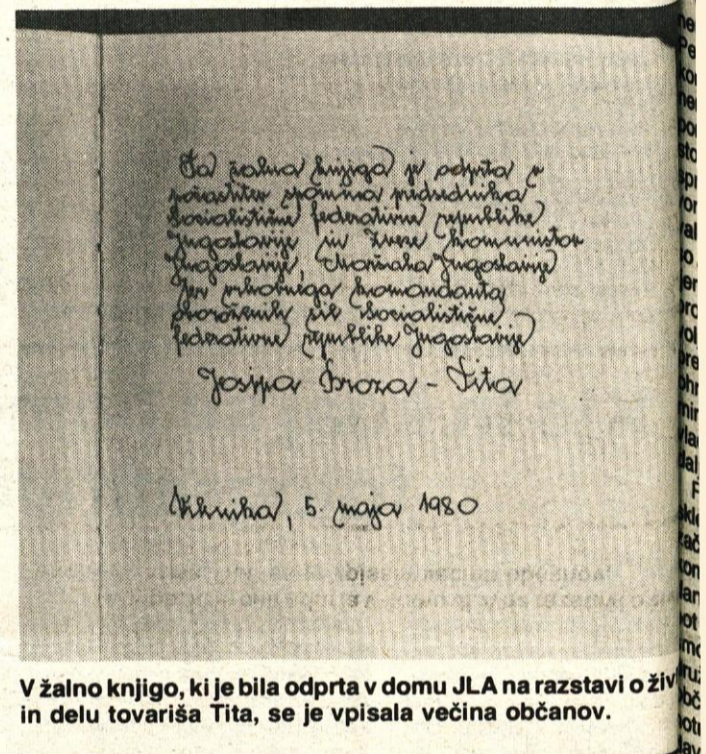 Ta žalna knjiga je odprta v
počastitev spomina predsednika
Socialistične federativne republike
Jugoslavije in Zveze komunistov
Jugoslavije, Maršala Jugoslavije
ter vrhovnega komandanta
oboroženih sil Socialistične
federativne republike Jugoslavije
Josipa Broza - Tita
Vrhnika, 5. maja 1980
V žalno knjigo, ki je bila odprta v domu JLA na razstavi o živ
in delu tovariša Tita, se je vpisala večina občanov.